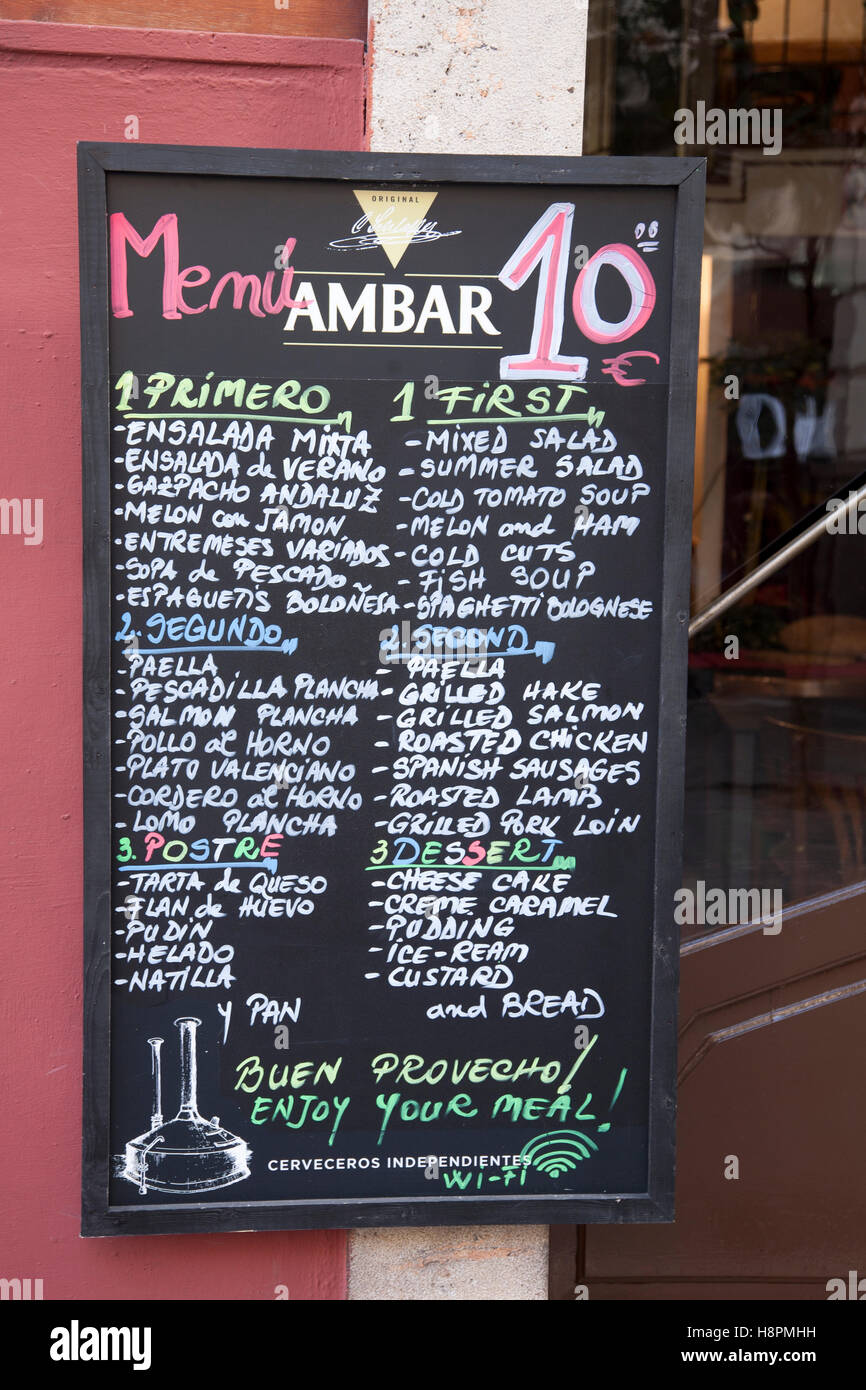 ORIGINAL
Menú AMBAR 10'00 €
1 PRIMERO
-ENSALADA MIXTA
-ENSALADA de VERANO
-GAZPACHO ANDALUZ
-MELON con JAMON
-ENTREMESES VARIADOS
-SOPA de PESCADO
-ESPAGUETIS BOLOÑESA
2. SEGUNDO
-PAELLA
-PESCADILLA PLANCHA
-SALMON PLANCHA
-POLLO al HORNO
-PLATO VALENCIANO
-CORDERO al HORNO
-LOMO PLANCHA
3. POSTRE
-TARTA de QUESO
-FLAN de HUEVO
-PUDIN
-HELADO
-NATILLA
y PAN
1 FIRST
-MIXED SALAD
-SUMMER SALAD
-COLD TOMATO SOUP
-MELON and HAM
-COLD CUTS
-FISH SOUP
-SPAGHETTI BOLOGNESE
2. SECOND
- PAELLA
-GRILLED HAKE
-GRILLED SALMON
-ROASTED CHICKEN
-SPANISH SAUSAGES
-ROASTED LAMB
-GRILLED PORK LOIN
3 DESSERT
-CHEESE CAKE
-CREME CARAMEL
-PUDDING
-ICE-REAM
-CUSTARD
and BREAD
BUEN PROVECHO!
ENJOY YOUR MEAL!
CERVECEROS INDEPENDIENTES
WI-FI
alamy
Image ID: H8PMHH
www.alamy.com